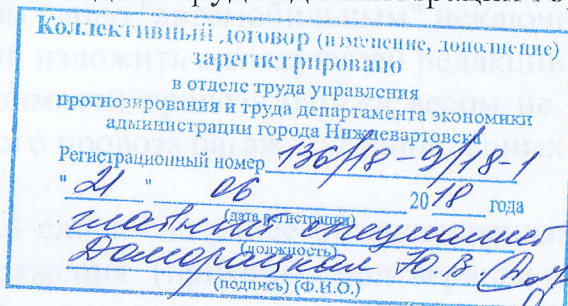 Коллективный договор (изменение, дополнение)
зарегистрировано
в отделе труда управления
прогнозирования и труда департамента экономики
администрации города Нижневартовска
Регистрационный номер 136/18-9/18-1
"21" 06 2018 года
(дата регистрации)
главный специалист
(должность)
Доморацкая Ю.В.
(подпись) (Ф.И.О.)